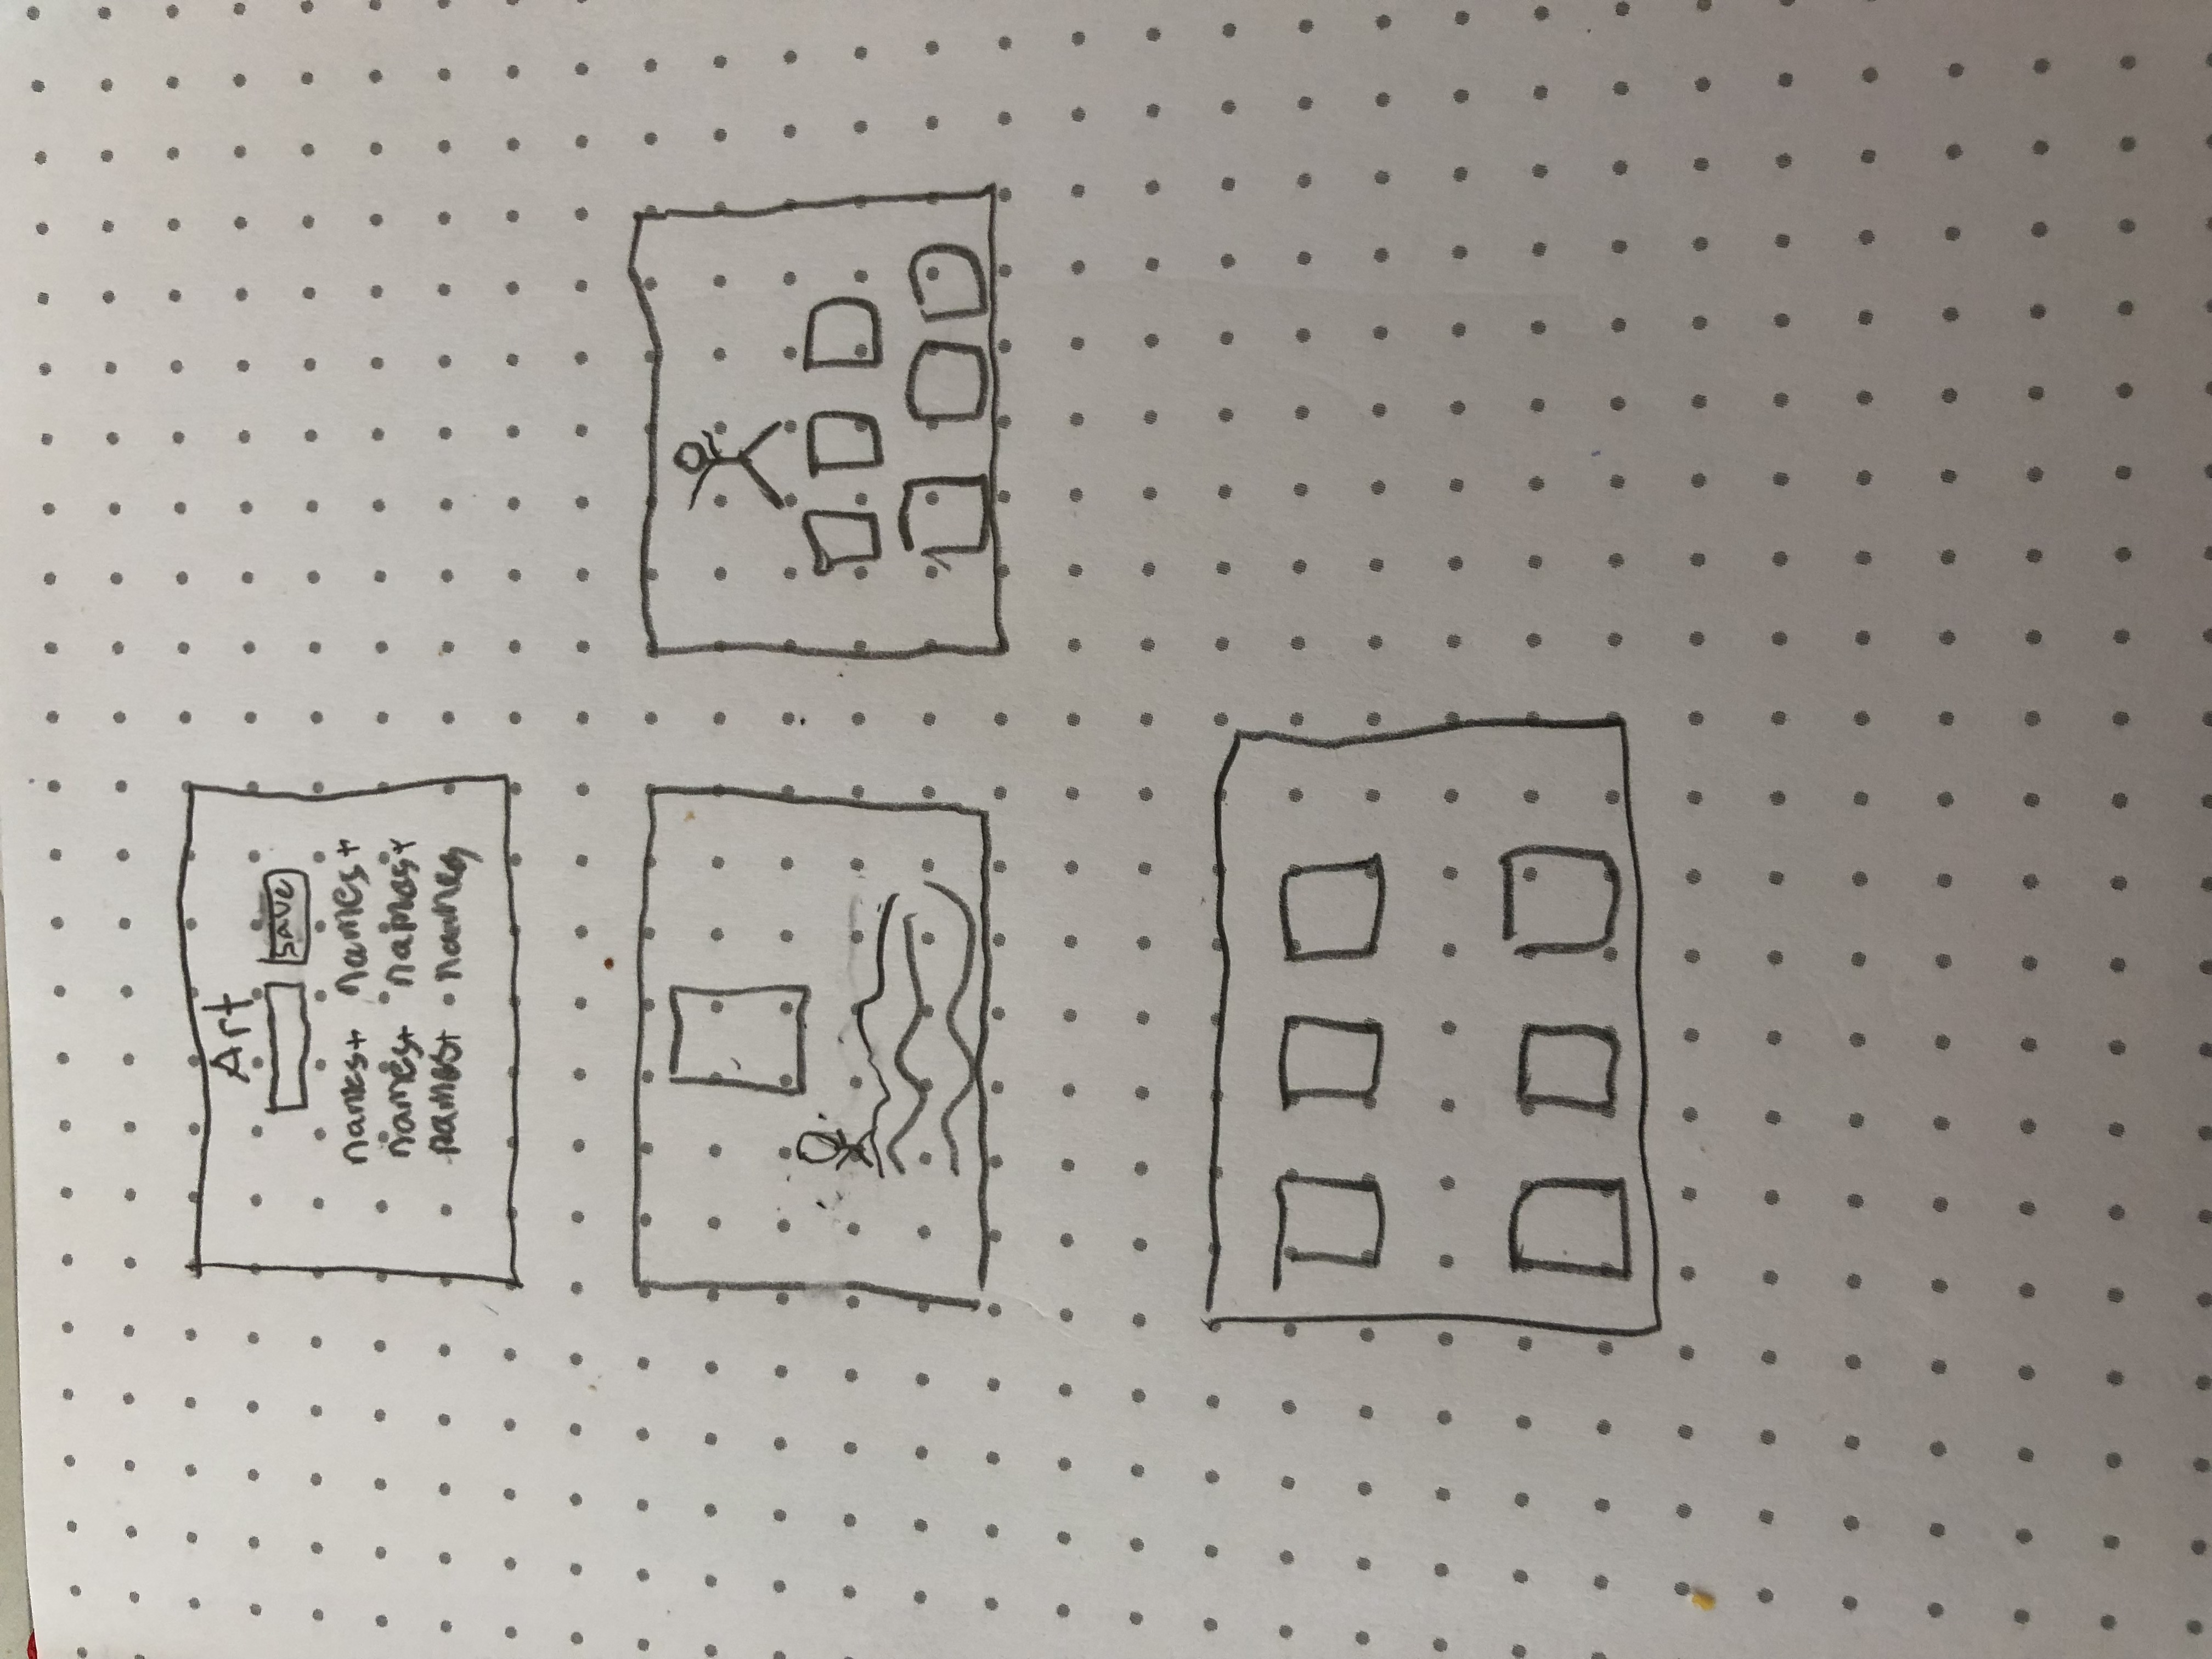 Art
save
names+ names+
names+ names+
names+ names